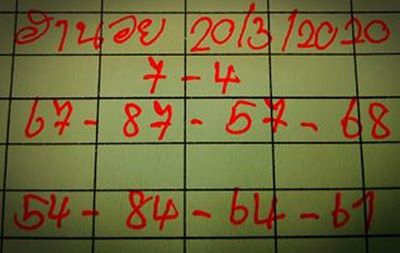 ฮานอย 20/3/2020
7 - 4
67 - 87 - 57 - 68
54 - 84 - 64 - 61